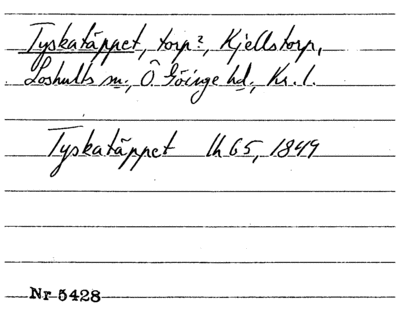 Tyskatäppet, torp?, Kjellstorp,
Loshults sn., Ö. Göinge hd., Kr. l.
Tyskatäppet lh 65, 1849
Nr 5428